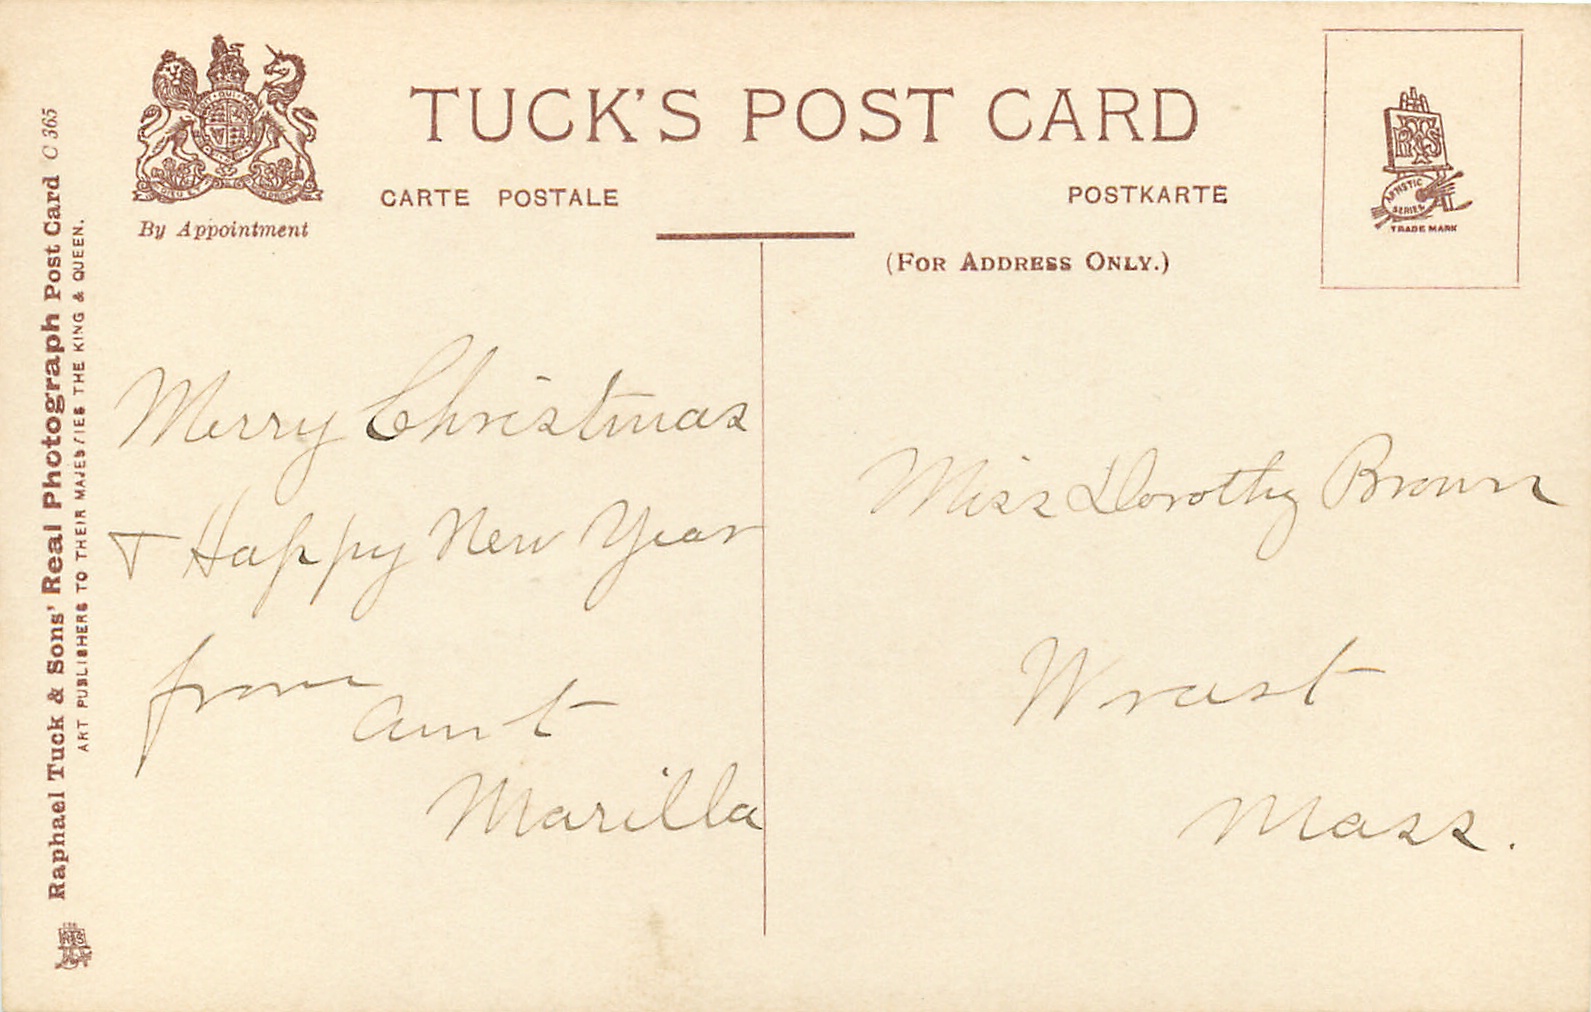 TUCK'S POST CARD
CARTE POSTALE
POSTKARTE
By Appointment
(FOR ADDRESS ONLY.)
ARTISTIC
SERIES
TRADE MARK
Raphael Tuck & Sons' Real Photograph Post Card C 365
ART PUBLISHERS TO THEIR MAJESTIES THE KING & QUEEN.
Merry Christmas
& Happy New Year
from
Aunt
Marilla
Miss Dorothy Brown
Mass.